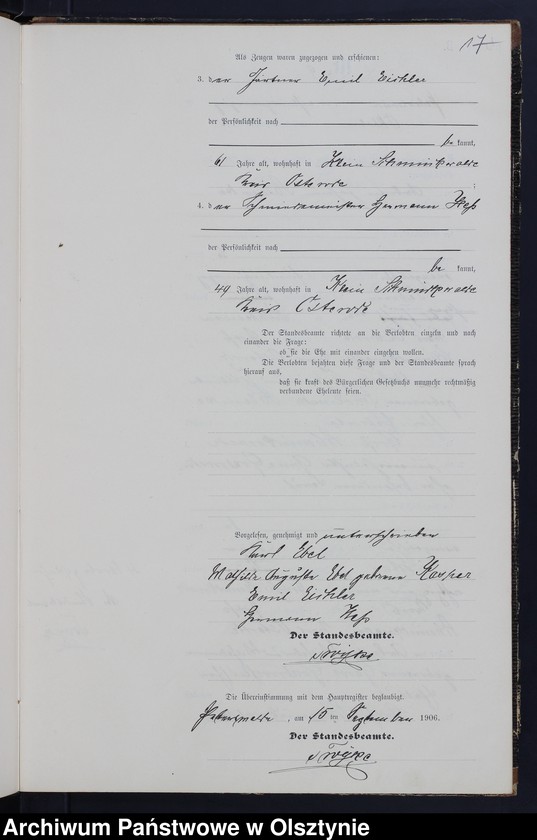 17
Als Zeugen waren zugezogen und erschienen:
3. der Gärtner Emil Eichler
der Persönlichkeit nach
be kannt,
61 Jahre alt, wohnhaft in Klein
Kreis Osterode ;
4. der Schmiedemeister Hermann
der Persönlichkeit nach
be kannt,
49 Jahre alt, wohnhaft in Klein
Kreis Osterode
Der Standesbeamte richtete an die Verlobten einzeln und nach
einander die Frage:
ob sie die Ehe mit einander eingehen wollen.
Die Verlobten bejahten diese Frage und der Standesbeamte sprach
hierauf aus,
daß sie kraft des Bürgerlichen Gesetzbuchs nunmehr rechtmäßig
verbundene Eheleute seien.
Vorgelesen, genehmigt und unterschrieben
Karl Ebel
Mathilde Auguste Ebel geborene Kasper
Emil Eichler
Hermann
Der Standesbeamte.
Die Übereinstimmung mit dem Hauptregister beglaubigt.
, am 15 ten September 1906.
Der Standesbeamte.
Archiwum Państwowe w Olsztynie